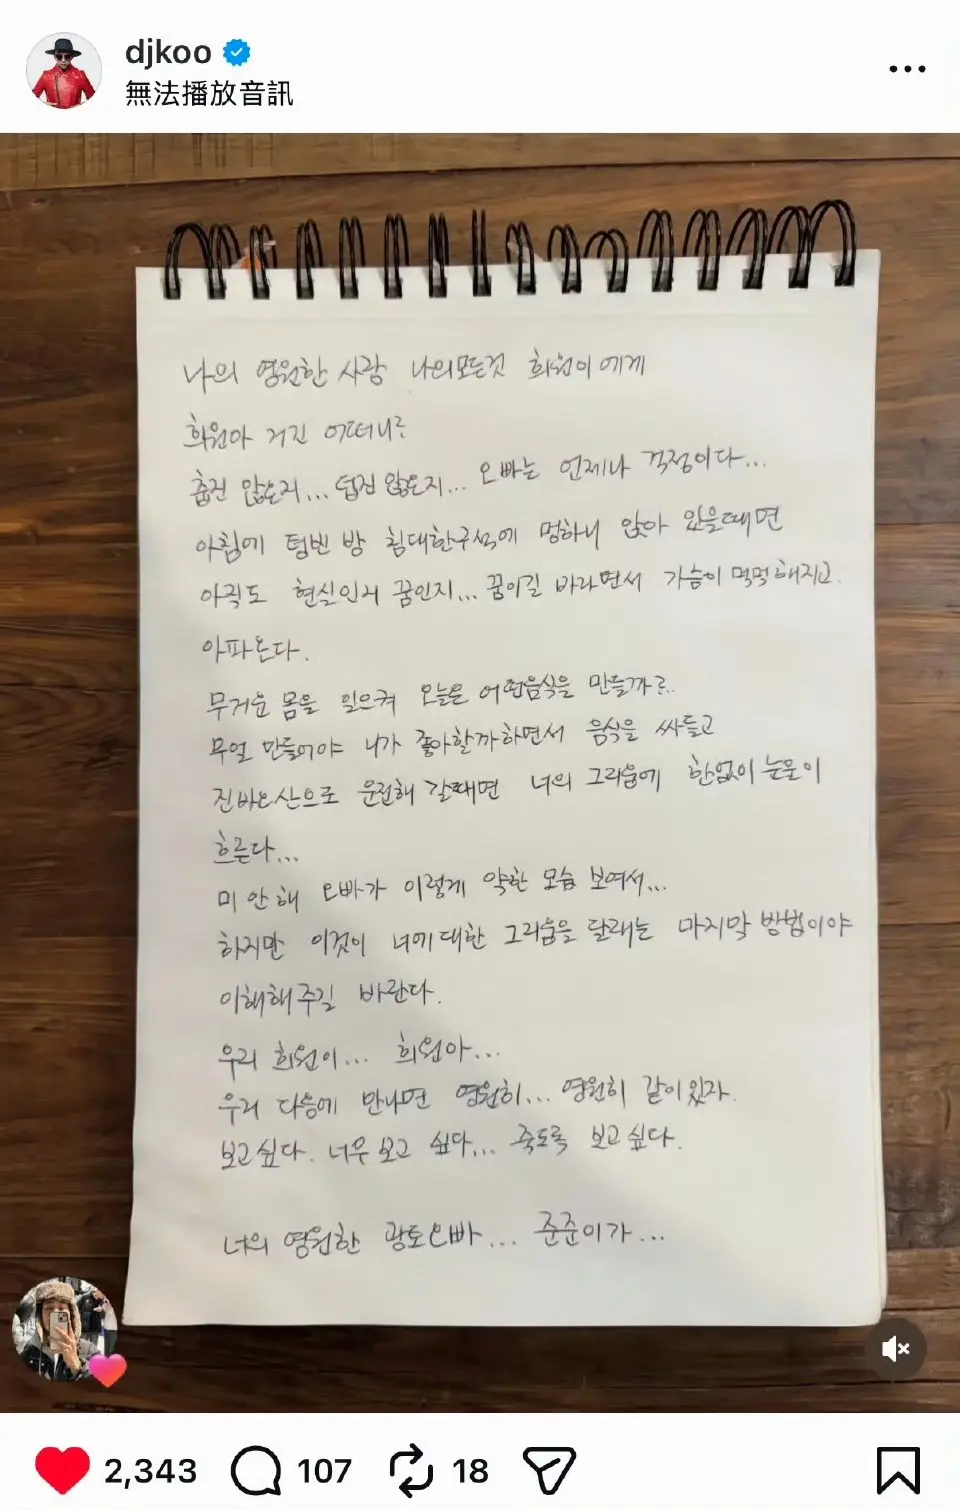 djkoo
無法播放音訊
나의 영원한 사랑 나의모든것 희원이에게
희원아 거긴 어떠니?
춥진 않은지... 덥진 않은지... 오빠는 언제나 걱정이다...
아침에 텅빈 방 침대한구석에 멍하니 앉아 있을때면
아직도 현실인지 꿈인지... 꿈이길 바라면서 가슴이 먹먹해지고
아파온다.
무거운 몸을 일으켜 오늘은 어떤음식을 만들까?..
무얼 만들어야 니가 좋아할까하면서 음식을 싸들고
진바오산으로 운전해 갈때면 너의 그리움에 한없이 눈물이
흐른다...
미안해 오빠가 이렇게 약한 모습 보여서...
하지만 이것이 너에대한 그리움을 달래는 마지막 방법이야
이해해주길 바란다.
우리 희원이... 희원아...
우리 다음에 만나면 영원히... 영원히 같이있자.
보고싶다. 너무 보고 싶다... 죽도록 보고싶다.
너의 영원한 광토오빠... 준준이가...
2,343
107
18